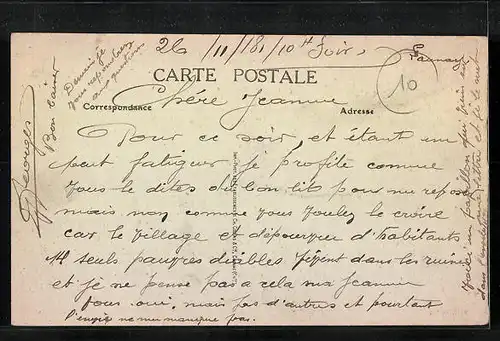 26/11/18/10H Soir
CARTE POSTALE
Correspondance
Adresse
Chère Jeanne
Pour ce soir et étant un
peut fatiguer je profite comme
vous le dites du bon lit pour me repose
mais non comme vous voulez le croire
car le village et dépourvuer d'habitants
14 seuls pauvres diables vivent dans les ruines
et je ne pense pas a cela ma Jeanne
vous oui, mais pas d'autres et pourtant
l'envie ne me manque pas.
Demain je
vous repondrez
aux questions
Bon baiser
Georges
10
Voici un papillon qui
dans l'enveloppe